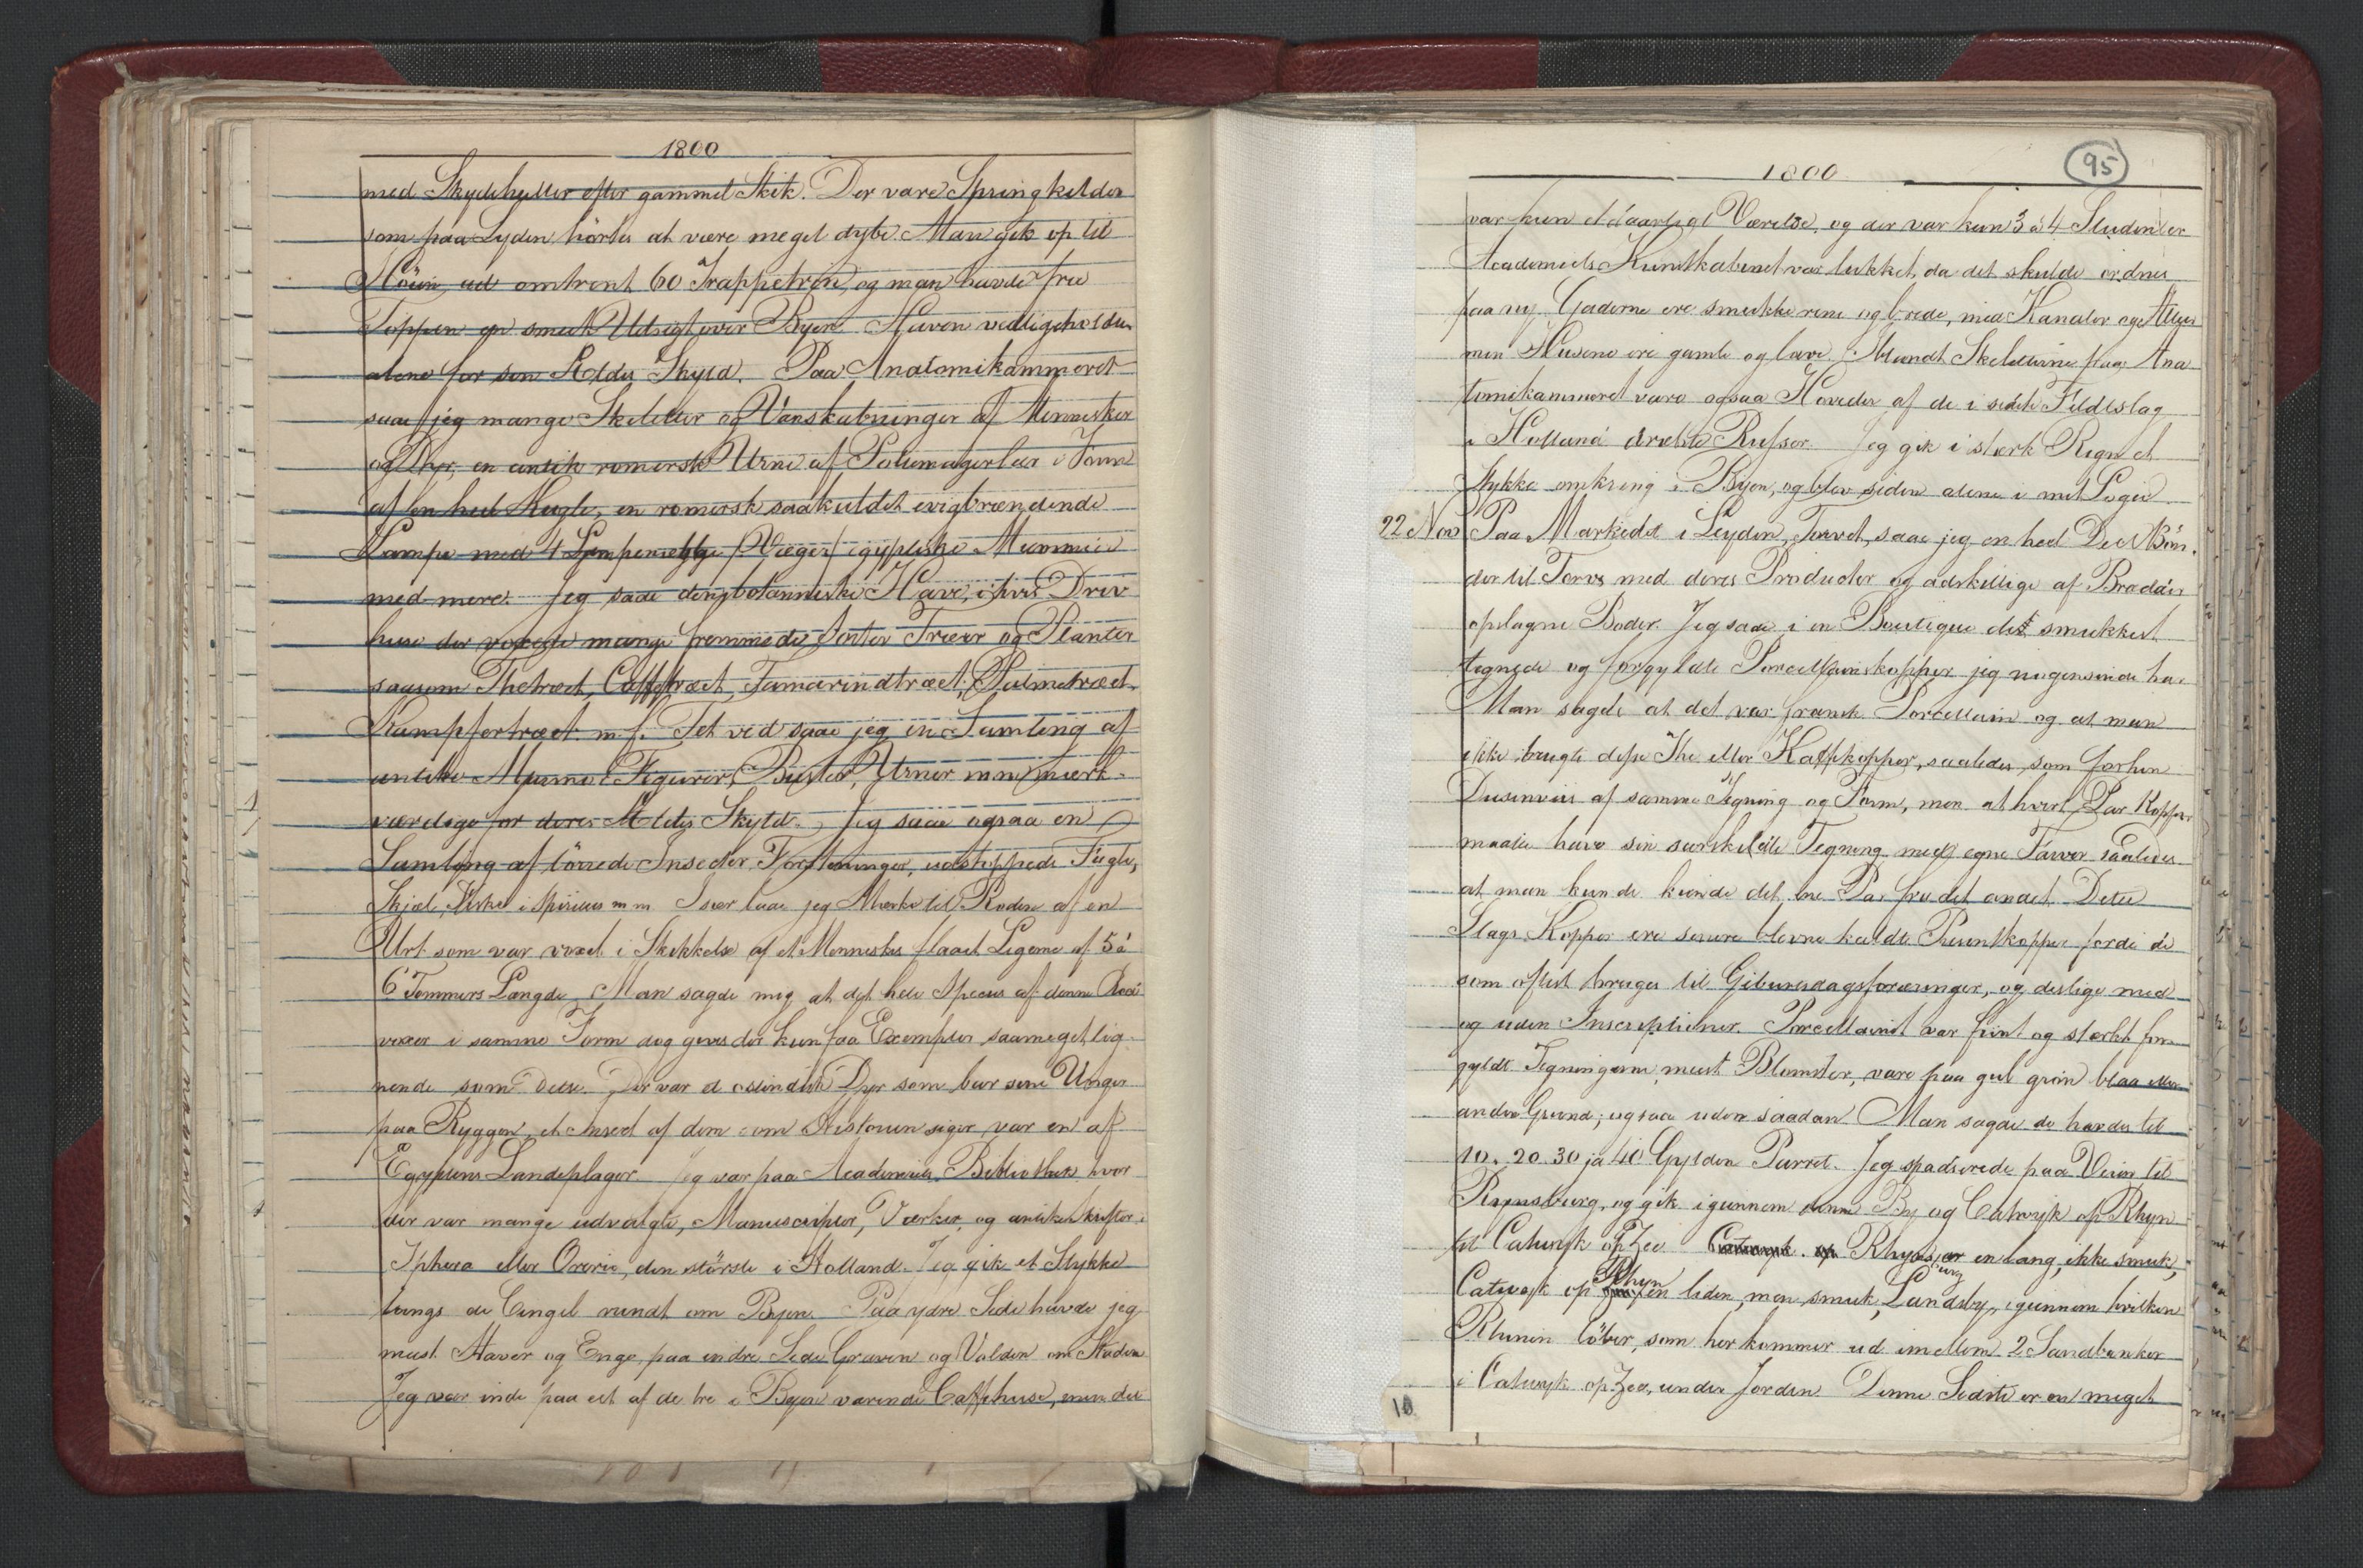 1800
med Skydehuller efter gammel Skik. Der vare Springkilder
som paa Lyden hörtes at være meget dybe. Man gik op til
Höien ad omtrent 60 Trappetrin, og man havde fra
Toppen en smuk Udsigt over Byen. Haven vedligeholdes
alene for sin Ældes Skyld. Paa Anatomikammeret
saae jeg mange Skeletter og Vanskabninger af Mennesker
og Dyr, en antik romersk Urne af Potemagerleer i Form
af en heel Kugle, en romersk saakaldet evigbrændende
Lampe med 4 Væger egyptiske Mumier
med mere. Jeg saae den botanniske Have, i hvis Driv
huse der voxede mange fremmede Træer og Planter
saasom Thetræet, Caffetræet, Tamarindtræet, Palmetræet,
Kampfertræet m. f. Tet ved saae jeg en Samling af
antike Marmor Figurer, Buster, Urner m m mærk-
værdige for deres Ældes Skyld. Jeg saae ogsaa en
Samling af törrede Insecter Forsteninger, udstoppede Fugle,
Skjæl, Fiske i Spiritus m m Især lagde jeg Mærke til Roden af en
Urt som var voxet i Skikkelse af et Menneskes flaaet Legeme af 5 á
6 Tommers Længde. Man sagde mig at det hele Species af denne Rod
voxer i samme Form dog gives der kun faa Exempler saameget lig-
nende som dette. Der var et ostindisk Dyr som bar sine Unger
paa Ryggen, et Insect af dem som Historien siger var en af
Egyptens Landeplager. Jeg var paa Academiets Bibliothek hvor
der var mange udvalgte, Manuscripter, Værker, og
Sphæra eller Oreri, den störste i Holland. Jeg gik et Stykke
langs de Cingel rundt om Byen. Paa ydre Side havde jeg
mest Haver og Enge, paa indre Side Graven og Volden om Staden
Jeg var inde paa eet af de tre i Byen værende Caffehuse, men det
95
1800
var kun et daarligt Værelse, og der var kun 3 á 4 Studenter
Academiets Kunstkabinet var lukket, da det skulde ordnes
paa ny. Gaderne ere smukke rene og brede, med Kanaler og Alleer
men Husene ere gamle og lave. Blandt Skeletterne paa Ana-
tomikammeret vare ogsaa Hoveder af de i sidste Feldtslag
i Holland dræbte Russer. Jeg gik i stærk Regn et
Stykke omkring i Byen, og blev siden alene i mit Logie
22 Nov Paa Markedet i Leyden, Torvet, saae jeg en heel Deel Bön-
der til Torvs med deres Producter og adskillige af Brædder
opslagne Boder. Jeg saae i en Boutique det smukkest
tegnede og forgyldte Porcellainskopper jeg nogensinde ha.
Man sagde at det var fransk Porcellain og at man
ikke brugte disse The eller Kaffekopper, saaledes, som forhen
Dusinviis af samme Tegning og Form, men at hvert Par Kopper
maatte have sin særskildte Tegning med egne Farver saaledes
at man kunde kiende det ene Par fra det andet. Dette
Slags Kopper ere senere blevne kaldte Pruntkopper fordi de
som oftest bruges til Geburtsdagsforæringer, og deslige med
og uden Inscriptioner. Porcellainet var fiint og stærkt for-
gyldt Tegningerne meest Blomster, vare paa gul grön blaa eller
anden Grund; ogsaa uden saadan. Man sagde de havdes til
10. 20. 30 ja 40 Gylden Parret. Jeg spadserede paa Veien til
Rynsburg, og gik igiennem denne By og Catwyk op Rhyn
til Catwyk op Zee. Catwyk op Rhynsburg er en lang, ikke smuk,
Catwyk op Rhyn en liden, men smuk, Landsby, igiennem hvilken
Rhinen löber, som her kommer ud imellem 2 Sandbanker
i Catwyk op Zee, under Jorden. Denne Sidste er en meget
10